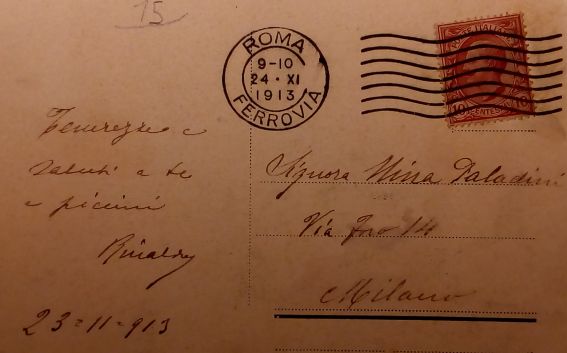 15
ROMA
9-10
24 · XI
1913
FERROVIA
POSTE ITALIANE
10 CENTESIMI 10
Tenerezze e
saluti a te
e piccini
Rinaldo
23=11=913
Signora Nina Paladini
Via Foro 14
Milano